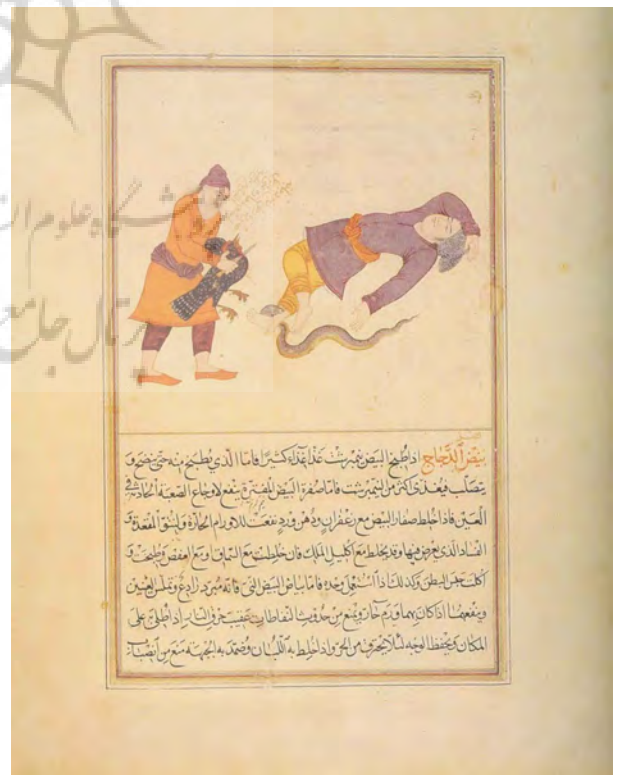 بيض الدجاج اذا طبخ البيض نيمبرشت غذا غذاء كثيرا فاما الذي يطبخ منه حتى ينضج و
يتصلب فيغذى اكثر من النيمبرشت فاما صفرة البيض ينفع لاوجاع الصعبة الحادثة في
العين فاذا خلط صفار البيض مع زعفران ودهن ورد نفعت للاورام الحارة ولشقوق المقعدة و
الفساد الذي يعرض فيها وقد يخلط مع اكليل الملك فان خلطت مع السماق ومع العفص وطبخت و
اكلت حبس البطن وكذلك اذا استعمل وحده فاما بياض البيض النى فانه مبرد رادع وتملس العينين
وينفعهما اذا كان بهما ورم حار ويمنع من حدوث النفاطات عقيب حرق النار اذا طلى على
المكان ويحفظ الوجه لئلا يحترق من الحر واذا خلط به اللبان وضمد به الجبهة منع من انصباب
علوم ا
رتال جامع